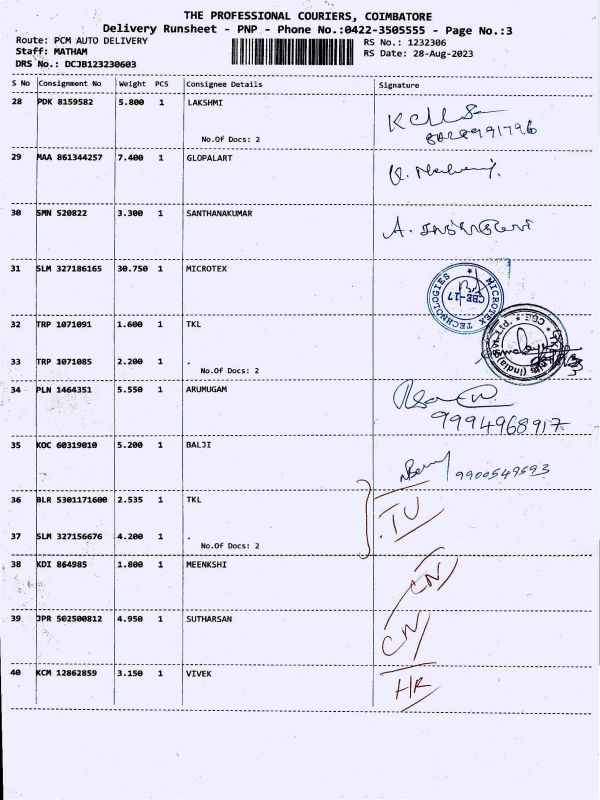 THE PROFESSIONAL COURIERS, COIMBATORE
Delivery Runsheet - PNP - Phone No.:0422-3505555 - Page No.:3
Route: PCM AUTO DELIVERY RS No.: 1232306
Staff: MATHAM RS Date: 28-Aug-2023
DRS No.: DCJB123230603
S No Consignment No Weight PCS Consignee Details Signature
28 PDK 8159582 5.800 1 LAKSHMI
No.Of Docs: 2
29 MAA 861344257 7.400 1 GLOPALART
30 SMN 520822 3.300 1 SANTHANAKUMAR
A.
31 SLM 327186165 30.750 1 MICROTEX
MICROTEX TECHNOLOGIES
CBE-17
32 TRP 1071091 1.600 1 TKL
(India) Pvt. Ltd. * CBE *
33 TRP 1071085 2.200 1 .
No.Of Docs: 2
34 PLN 1464351 5.550 1 ARUMUGAM
9994968917
35 KOC 60319010 5.200 1 BALJI
9900549693
36 BLR 5301171600 2.535 1 TKL
TU
37 SLM 327156676 4.200 1 .
No.Of Docs: 2
38 KDI 864985 1.800 1 MEENKSHI
CN
39 JPR 502500812 4.950 1 SUTHARSAN
CN
40 KCM 12862859 3.150 1 VIVEK
HR